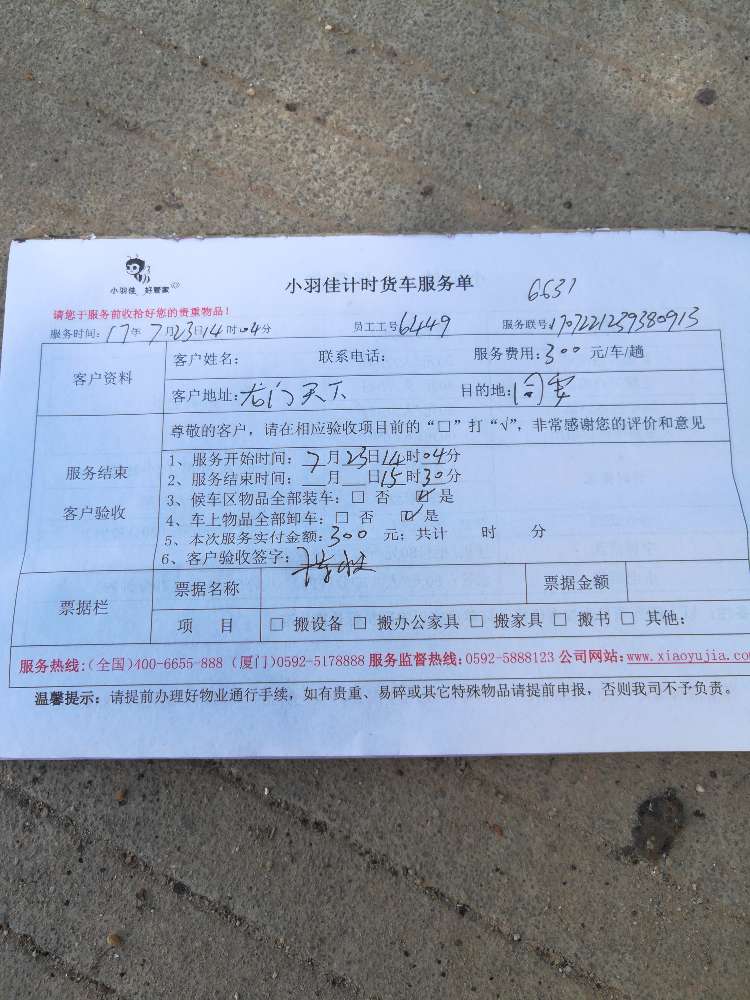 小羽佳 好管家
小羽佳计时货车服务单
6631
请您于服务前收拾好您的贵重物品!
服务时间: 17年 7月23日14时04分 员工工号6449 服务联号1707221239380913
客户资料
客户姓名: 联系电话: 服务费用:300 元/车/趟
客户地址:龙门天下 目的地:同安
服务结束
客户验收
尊敬的客户,请在相应验收项目前的“□”打“√”,非常感谢您的评价和意见
1、服务开始时间: 7月23日14时04分
2、服务结束时间: 月 日15时30分
3、候车区物品全部装车: □ 否 ☑ 是
4、车上物品全部卸车: □ 否 ☑ 是
5、本次服务实付金额:300 元; 共计 时 分
6、客户验收签字:
票据栏
票据名称 票据金额
项 目 □ 搬设备 □ 搬办公家具 □ 搬家具 □ 搬书 □ 其他:
服务热线:(全国)400-6655-888 (厦门)0592-5178888 服务监督热线:0592-5888123 公司网站:www.xiaoyujia.co
温馨提示: 请提前办理好物业通行手续,如有贵重、易碎或其它特殊物品请提前申报,否则我司不予负责。